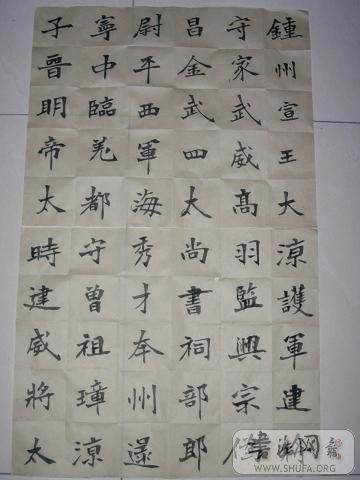 鍾州宣王大涼護軍建
守家武威高羽監興宗
昌金武四太尚書祠部郎
尉平西軍海秀才本州還
寧中臨羌都守曾祖璋涼
子晉明帝太時建威將太
WWW.SHUFA.ORG